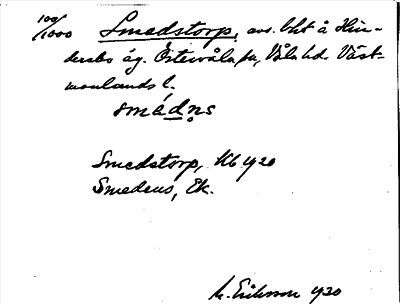 100/1000 Smedstorp, avs. bht å Hin-
dersbo äg. Östervåla sn, Våla hd. Väst-
manlands l.
smédṇs
Smedstorp, Kb 1920
Smedens, Ek.
M. Eriksson 1930